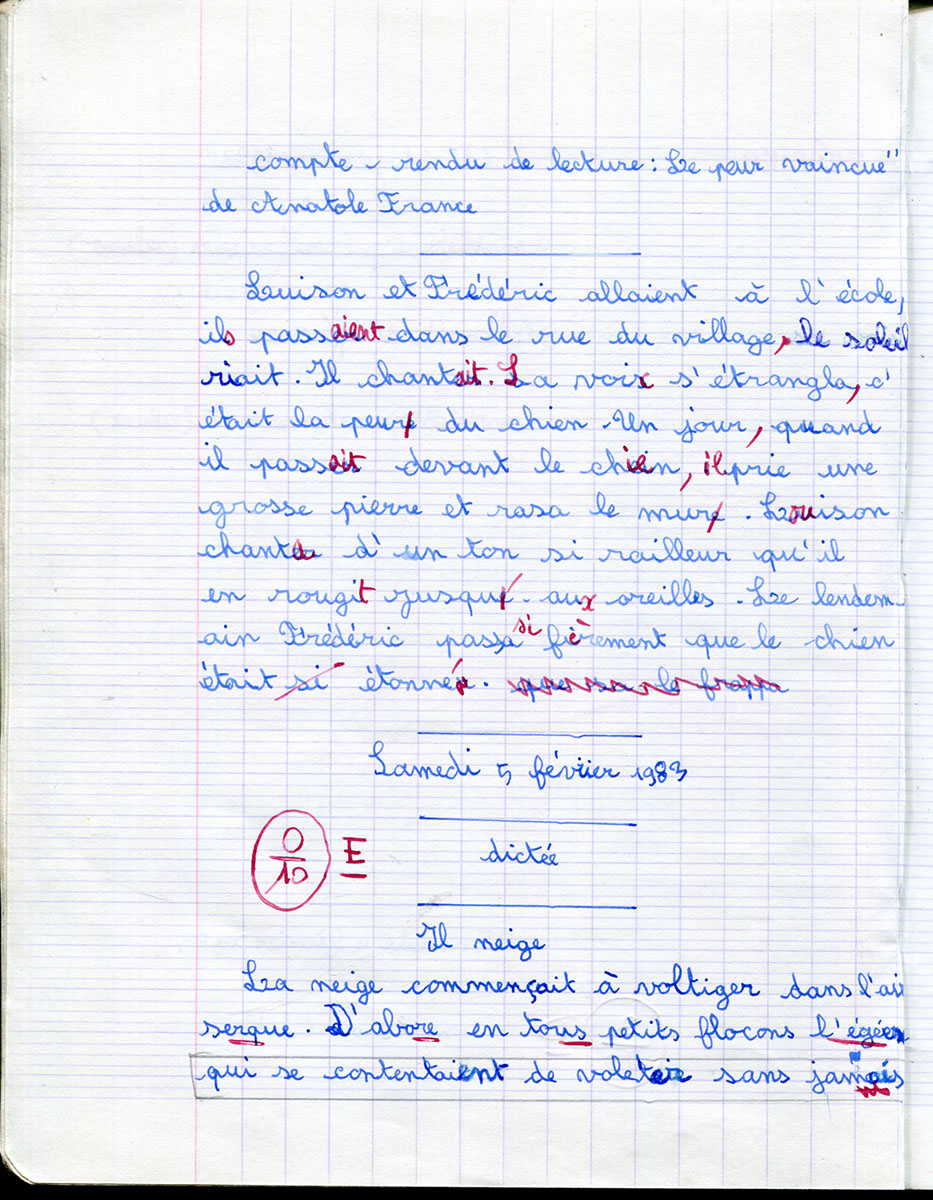 compte-rendu de lecture: Le peur vaincue"
de Anatole France
Luison et Frédéric allaient à l'école,
ils passaient dans le rue du village, le soleil
riait. Il chantait. La voix s'étrangla, c'
était la peur du chien. Un jour, quand
il passait devant le chien, il prie une
grosse pierre et rasa le mur. Louison
chanta d'un ton si railleur qu'il
en rougit jusqu' aux oreilles. Le lendem-
ain Frédéric passa si fièrement que le chien
était si étonné. le frappa
Samedi 5 février 1983
0/10 E
dictée
Il neige
La neige commençait à voltiger dans l'air
serque. D'abore en tous petits flocons l'égéen
qui se contentaient de voleter sans jamais